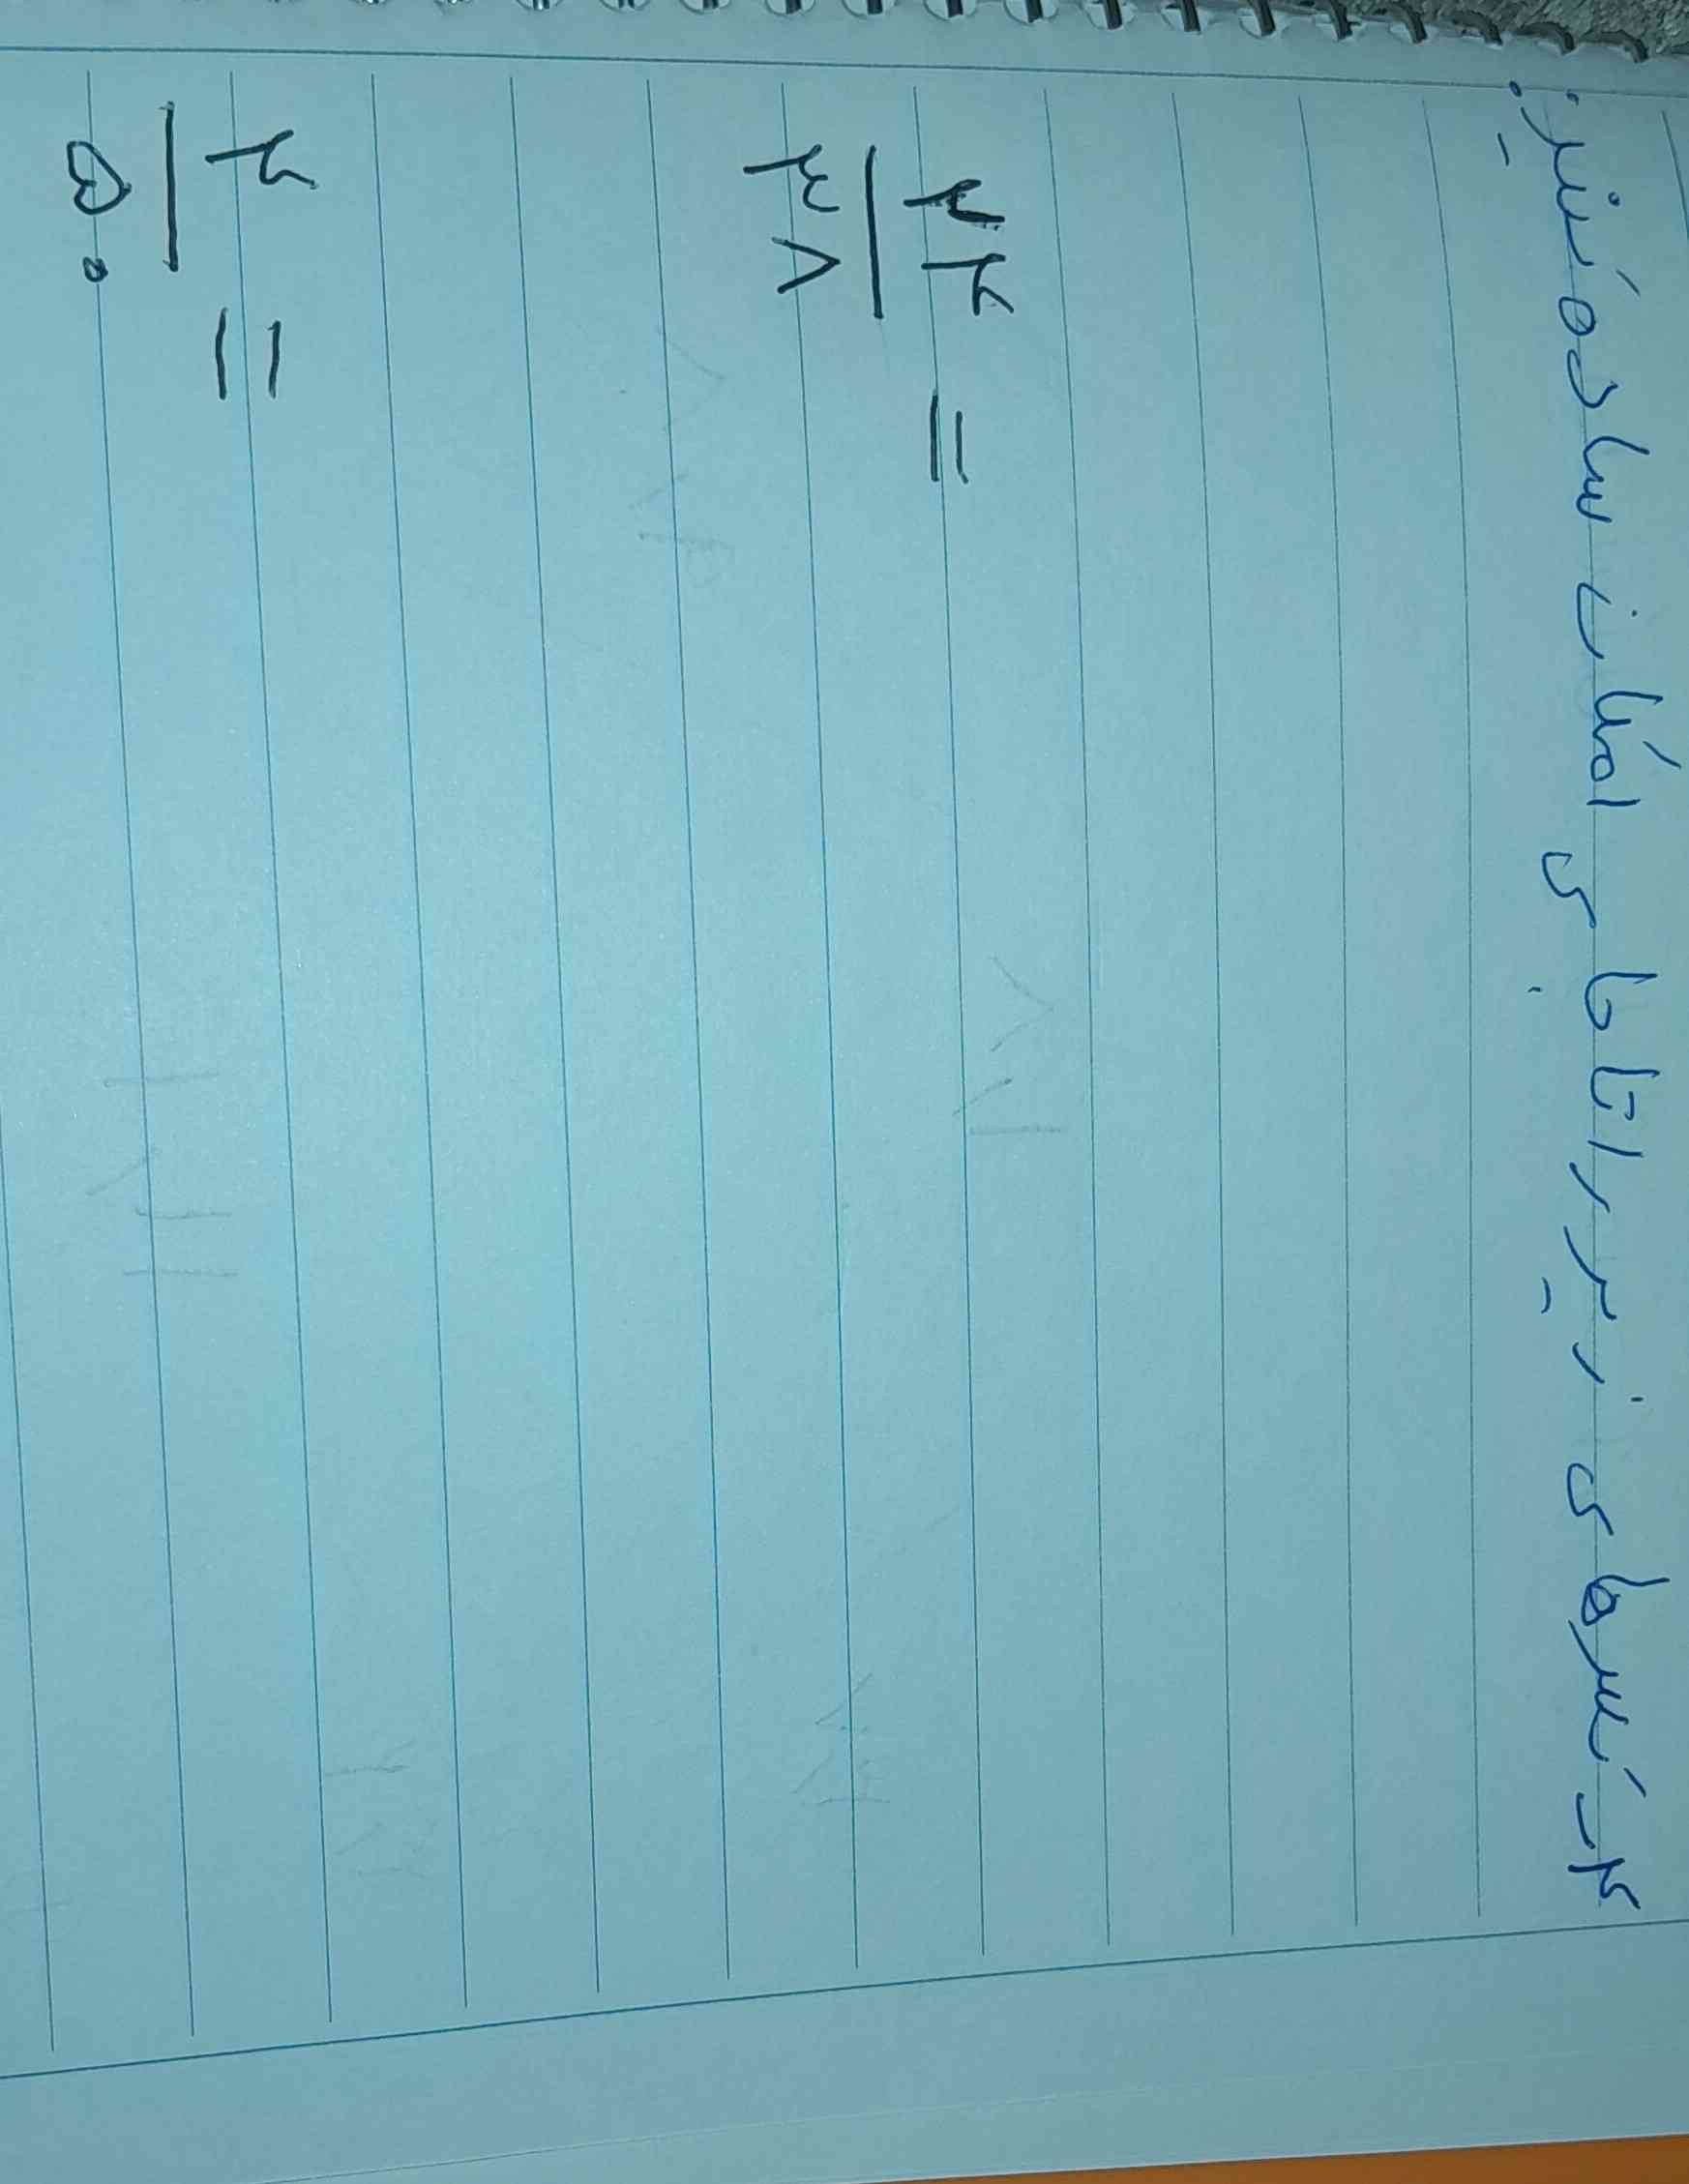 ۴ـ کسرهای زیر را تا جای امکان ساده کنید:
۲۴
۳۸ =
۴
۵۰ =